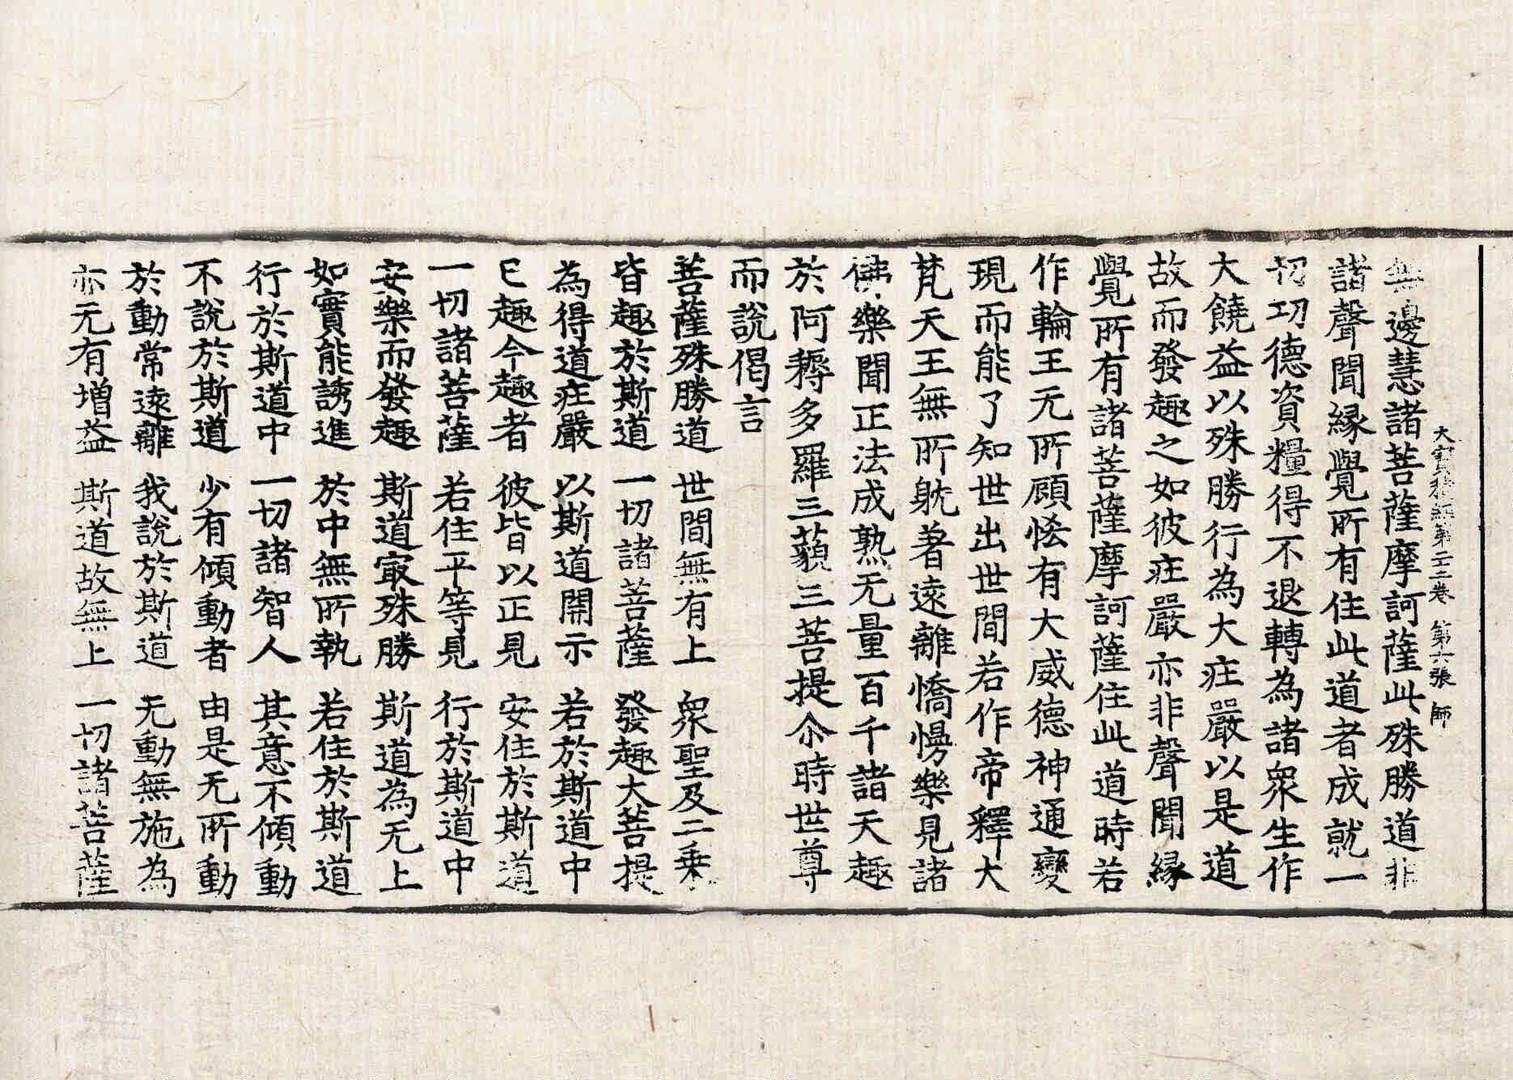 大寶積經第二十二卷 第六張 師
無邊慧諸菩薩摩訶薩此殊勝道非
諸聲聞緣覺所有住此道者成就一
切功德資糧得不退轉為諸眾生作
大饒益以殊勝行為大庄嚴以是道
故而發趣之如彼庄嚴亦非聲聞緣
覺所有諸菩薩摩訶薩住此道時若
作輪王无所顧悋有大威德神通變
現而能了知世出世間若作帝釋大
梵天王無所躭著遠離憍慢樂見諸
佛樂聞正法成熟无量百千諸天趣
於阿耨多羅三藐三菩提尒時世尊
而說偈言
菩薩殊勝道 世間無有上 眾聖及二乘
皆趣於斯道 一切諸菩薩 發趣大菩提
為得道庄嚴 以斯道開示 若於斯道中
已趣今趣者 彼皆以正見 安住於斯道
一切諸菩薩 若住平等見 行於斯道中
安樂而發趣 斯道冣殊勝 斯道為无上
如實能誘進 於中無所執 若住於斯道
行於斯道中 一切諸智人 其意不傾動
不說於斯道 少有傾動者 由是无所動
於動常遠離 我說於斯道 无動無施為
亦无有增益 斯道故無上 一切諸菩薩